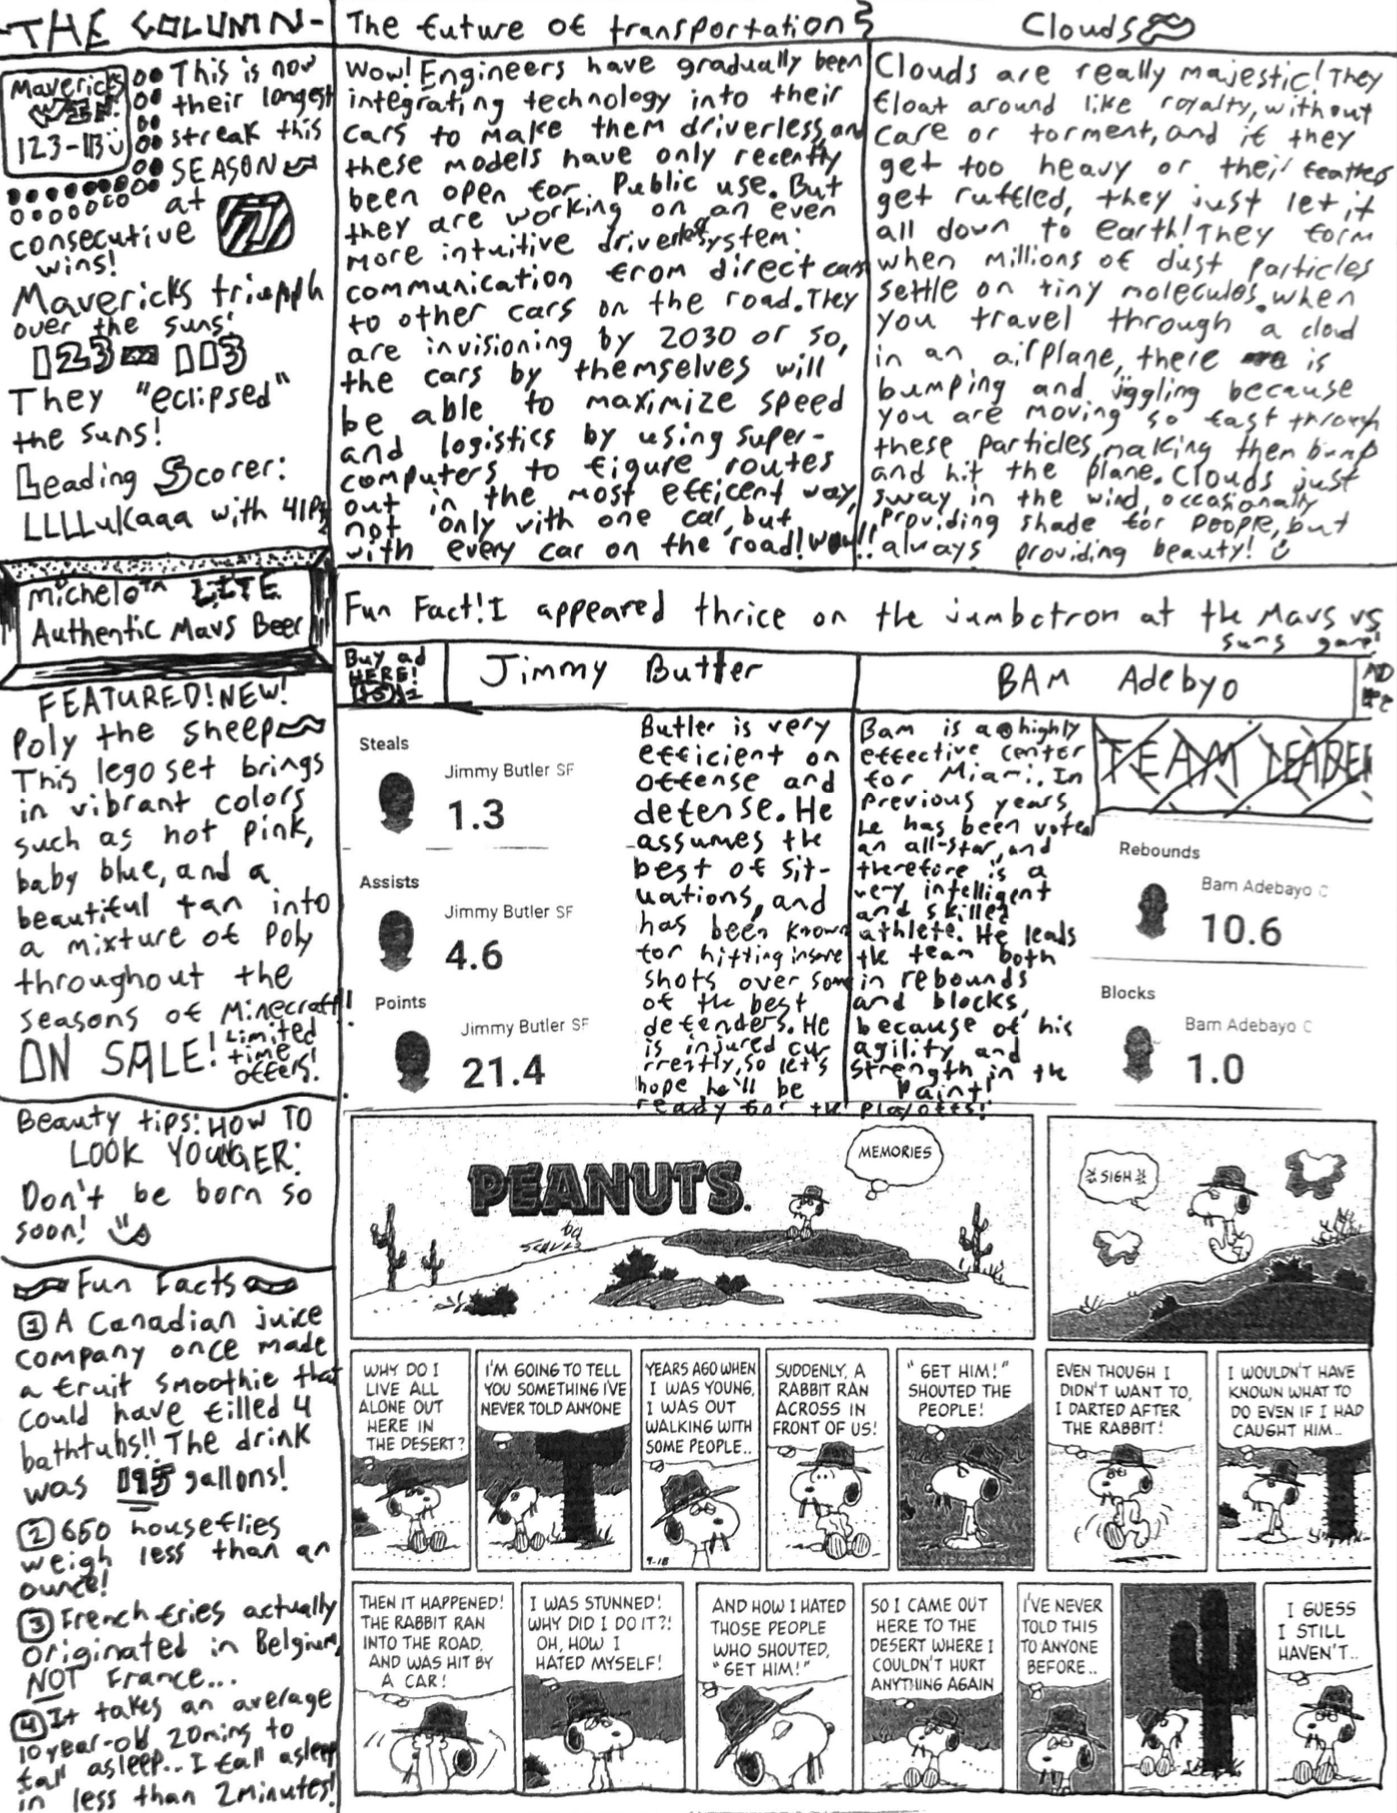 -THE COLUMN-
Mavericks
WIN!
123-113
This is now
their longest
streak this
SEASON
at
consecutive
wins!
Mavericks triumph
over the suns!
123 - 113
They "eclipsed"
the suns!
Leading Scorer:
LLLLuKaaa with 41Pts
Michelo™ LITE
Authentic Mavs Beer
FEATURED! NEW!
Poly the sheep
This lego set brings
in vibrant colors
such as hot pink,
baby blue, and a
beautiful tan into
a mixture of Poly
throughout the
seasons of Minecraft!!
ON SALE! Limited
time
offers!
Beauty tips: HOW TO
LOOK YOUNGER:
Don't be born so
soon!
Fun Facts
1 A Canadian juice
company once made
a fruit smoothie that
could have filled 4
bathtubs!! The drink
was 195 gallons!
2 650 houseflies
weigh less than an
ounce!
3 French fries actually
originated in Belgium,
NOT France...
4 It takes an average
10 year-old 20mins to
fall asleep.. I fall asleep
in less than 2 minutes!
The future of transportation
Wow! Engineers have gradually been
integrating technology into their
cars to make them driverless, and
these models have only recently
been open for Public use. But
they are working on an even
more intuitive driverless system:
communication from direct cars
to other cars on the road. They
are invisioning by 2030 or so,
the cars by themselves will
be able to maximize speed
and logistics by using super-
computers to figure routes
out in the most efficent way,
not only with one car, but
with every car on the road! Wow!!
Clouds
Clouds are really majestic! They
float around like royalty, without
care or torment, and if they
get too heavy or their feathers
get ruffled, they just let it
all down to earth! They form
when millions of dust particles
settle on tiny molecules. when
you travel through a cloud
in an airplane, there is
bumping and jiggling because
you are moving so fast through
these particles, making them bump
and hit the plane. Clouds just
sway in the wind, occasionally
providing shade for people, but
always providing beauty!
Fun Fact! I appeared thrice on the jumbotron at the Mavs vs
suns game!
Buy ad
HERE!
Jimmy Butler
Steals
Jimmy Butler SF
1.3
Assists
Jimmy Butler SF
4.6
Points
Jimmy Butler SF
21.4
Butler is very
efficient on
offense and
defense. He
assumes the
best of sit-
uations, and
has been known
for hitting insane
shots over some
of the best
defenders. He
is injured cur
rrently, so let's
hope he'll be
ready for the playoffs!
BAM Adebyo
AD
Bam is a highly
effective center
for Miami. In
previous years,
he has been voted
an all-star, and
therefore is a
very intelligent
and skilled
athlete. He leads
the team both
in rebounds
and blocks,
because of his
agility and
strength in the
Paint!
TEAM LEADER
Rebounds
Bam Adebayo C
10.6
Blocks
Bam Adebayo C
1.0
PEANUTS.
by
SCHULZ
MEMORIES
SIGH
WHY DO I
LIVE ALL
ALONE OUT
HERE IN
THE DESERT?
I'M GOING TO TELL
YOU SOMETHING I'VE
NEVER TOLD ANYONE
YEARS AGO WHEN
I WAS YOUNG,
I WAS OUT
WALKING WITH
SOME PEOPLE..
9-18
SUDDENLY, A
RABBIT RAN
ACROSS IN
FRONT OF US!
"GET HIM!"
SHOUTED THE
PEOPLE!
EVEN THOUGH I
DIDN'T WANT TO,
I DARTED AFTER
THE RABBIT!
I WOULDN'T HAVE
KNOWN WHAT TO
DO EVEN IF I HAD
CAUGHT HIM..
THEN IT HAPPENED!
THE RABBIT RAN
INTO THE ROAD,
AND WAS HIT BY
A CAR!
I WAS STUNNED!
WHY DID I DO IT?!
OH, HOW I
HATED MYSELF!
AND HOW I HATED
THOSE PEOPLE
WHO SHOUTED,
"GET HIM!"
SO I CAME OUT
HERE TO THE
DESERT WHERE I
COULDN'T HURT
ANYTHING AGAIN
I'VE NEVER
TOLD THIS
TO ANYONE
BEFORE..
I GUESS
I STILL
HAVEN'T..